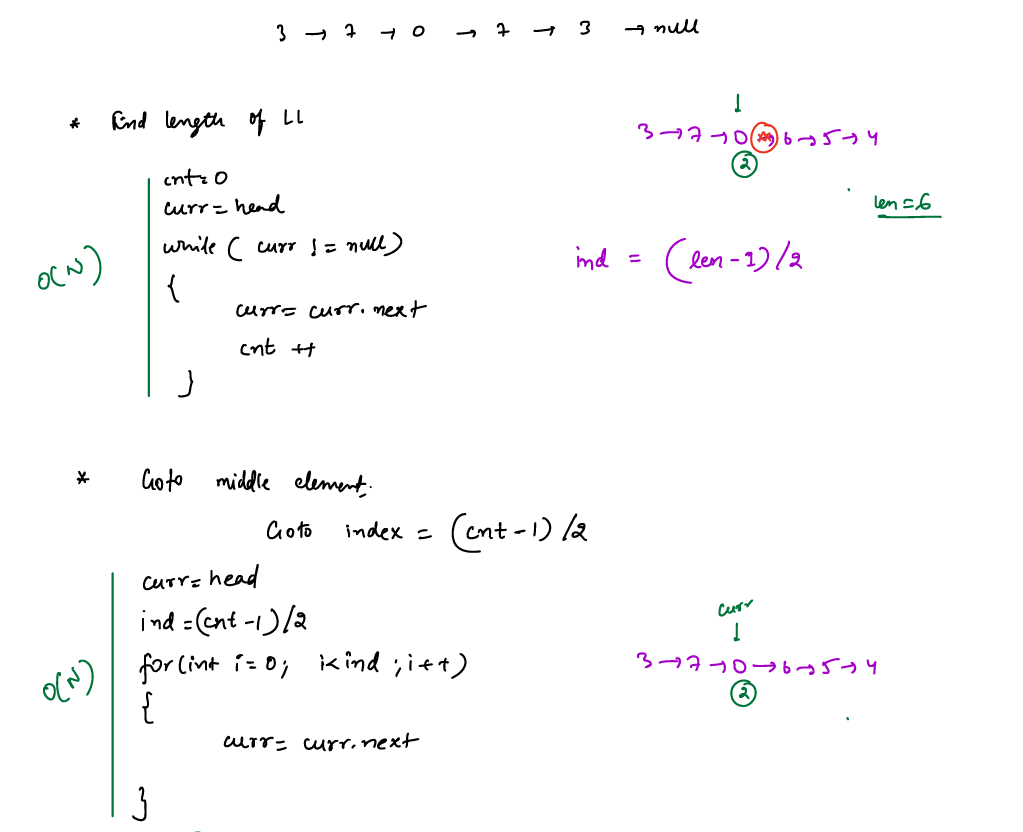 3 → 7 → 0 → 7 → 3 → null
* Find length of LL
cnt = 0
curr = head
while ( curr != null)
{
curr = curr.next
cnt ++
}
O(N)
3 → 7 → 0 → 6 → 5 → 4
2
len = 6
ind = (len - 1) / 2
* Goto middle element.
Goto index = (cnt - 1) / 2
curr = head
ind = (cnt - 1) / 2
for (int i = 0; i < ind ; i++)
{
curr = curr.next
}
O(N)
curr
↓
3 → 7 → 0 → 6 → 5 → 4
2